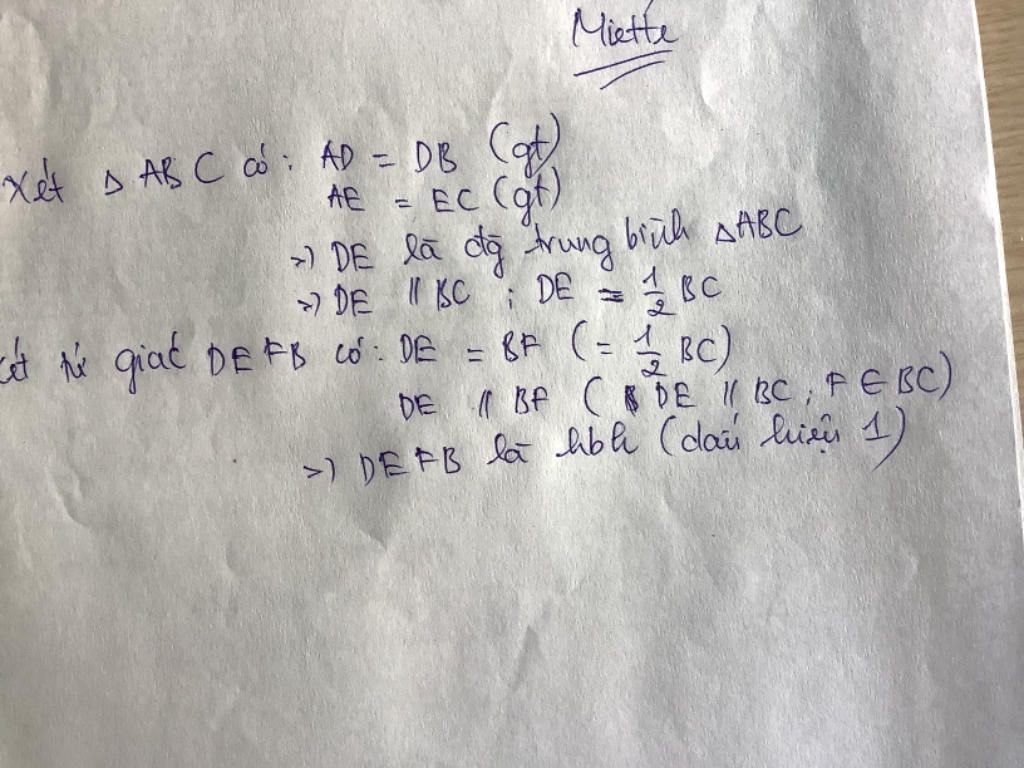 Miette
Xét Δ ABC có: AD = DB (gt)
AE = EC (gt)
=) DE là đg trung bình ΔABC
=) DE // BC ; DE = 1/2 BC
ét tứ giác DEFB có: DE = BF (= 1/2 BC)
DE // BF ( DE // BC ; F ∈ BC)
=) DEFB là hbh (dấu hiệu 1)